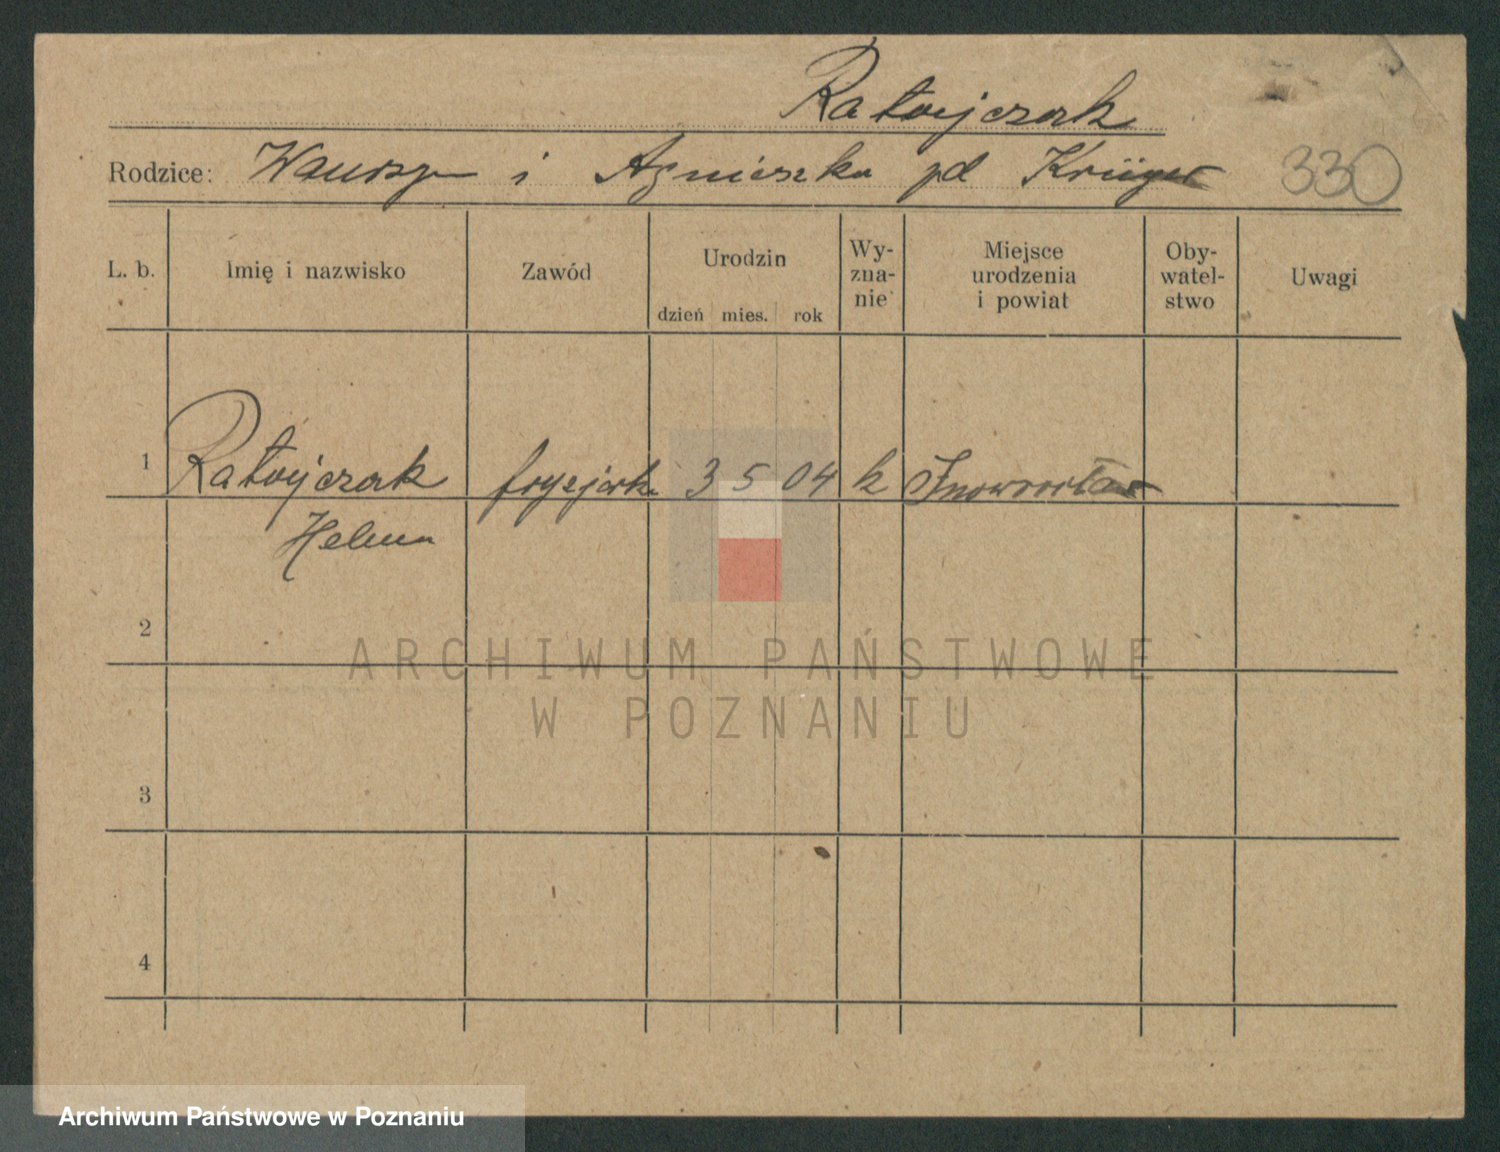 Ratajczak
Rodzice: i Agnieszka zd Krüger 330
L. b. Imię i nazwisko Zawód Urodzin dzień mies. rok Wy-zna-nie Miejsce urodzenia i powiat Oby-watel-stwo Uwagi
1 Ratajczak fryzjerka 3 5 04 k Inowrocław
Helena
2
ARCHIWUM PAŃSTWOWE
W POZNANIU
3
4
Archiwum Państwowe w Poznaniu